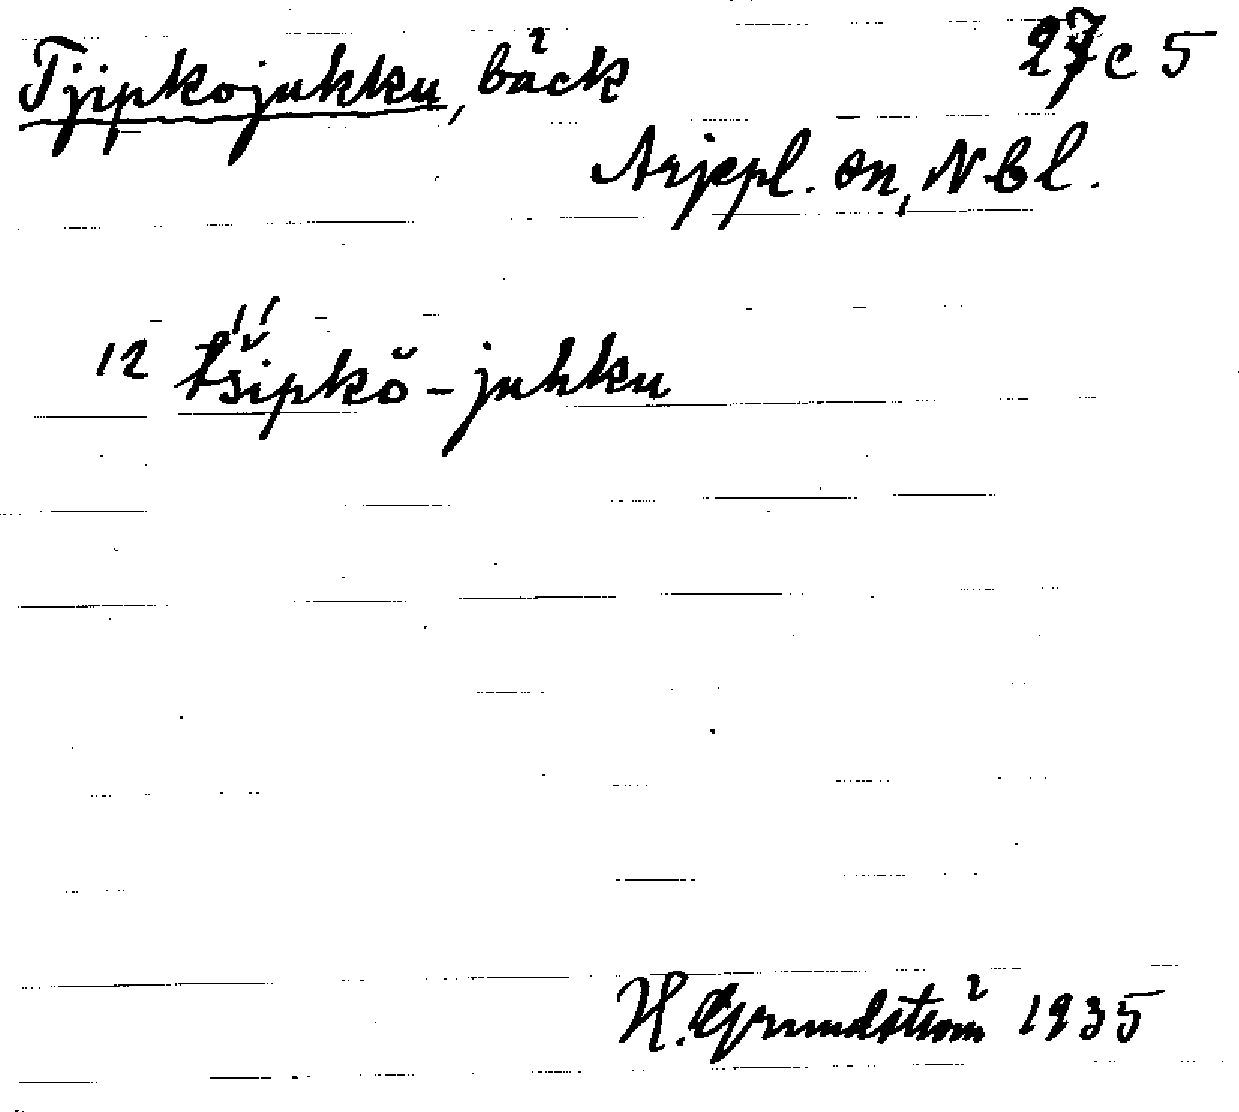 Tjipkojukku, bäck 27c 5
Arjepl. sn, Nbl.
12 tšipkŏ-juhku
H. Grundström 1935